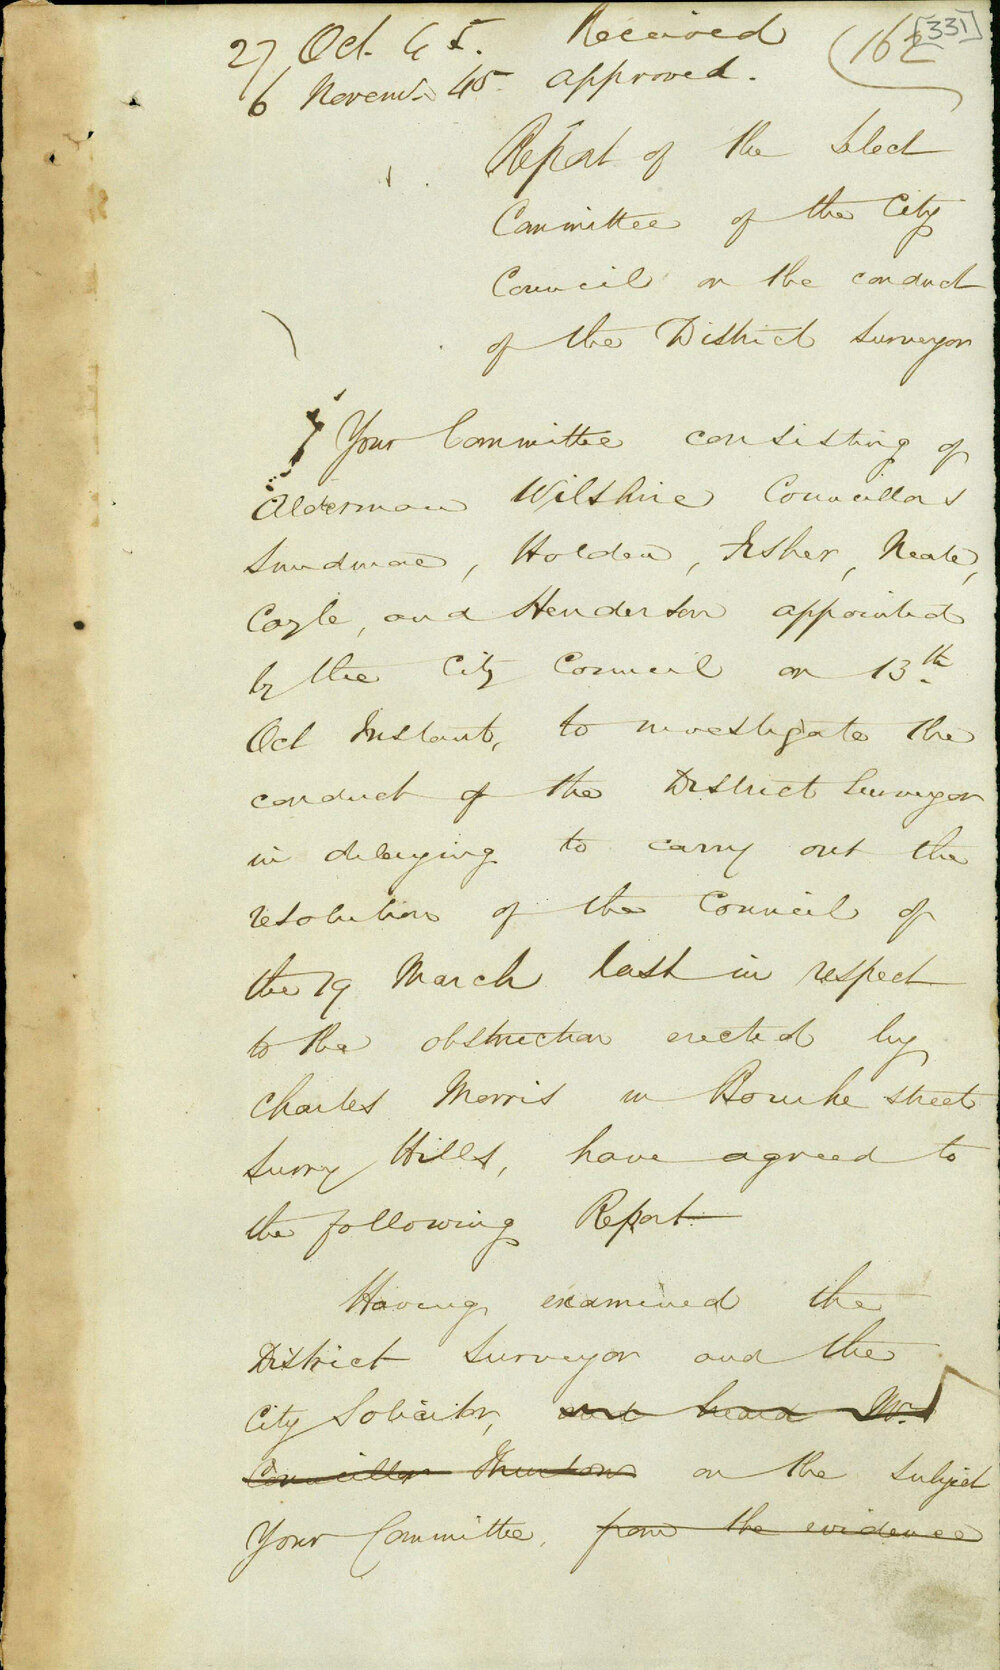 27 Oct. 45. Received (162 [331]
6 Novemr. 45 approved.
Report of the Select
Committee of the City
Council on the conduct
of the District Surveyor
Your Committee consisting of
Alderman Wilshire Councillors
Smidmore, Holden, Fisher, Neale,
Coyle, and Henderson appointed
by the City Council on 13th
Oct Instant, to investigate the
conduct of the District Surveyor
in delaying to carry out the
resolution of the Council of
the 19 March last in respect
to the obstruction erected by
Charles Morris in Bourke street
Surry Hills, have agreed to
the following Report
Having examined the
District Surveyor and the
City Solicitor, and heard Mr.
Councillor on the subject
Your Committee, from the evidence